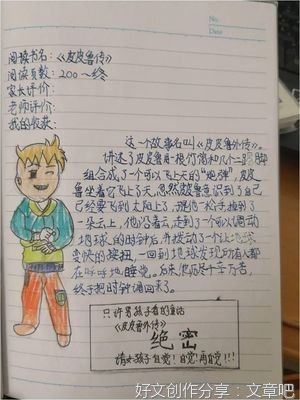 No.
Date
阅读书名:《皮皮鲁传》
阅读页数:200~终
家长评价:
老师评价:
我的收获:
这一个故事名叫《皮皮鲁外传》。
讲述了皮皮鲁用一根竹筒和几个二踢脚
组合成了一个可以飞上天的“炮弹”,皮皮
鲁坐着它飞上了天,忽然皮皮鲁意识到了自己
已经要飞到太阳上了,
一松手掉到了
一朵云上,他沿着云,走到了一个可以调动
地球的时钟
并拨动了一个让地球
变快的按钮,一回到地球发现所有人都
在呼呼地睡觉。
他历尽千辛万苦,
终于把时钟调回来了。
只许男孩子看的童话
《皮皮鲁外传》
绝密
请女孩子自觉!自觉!再自觉!!!
好文创作分享:文章吧